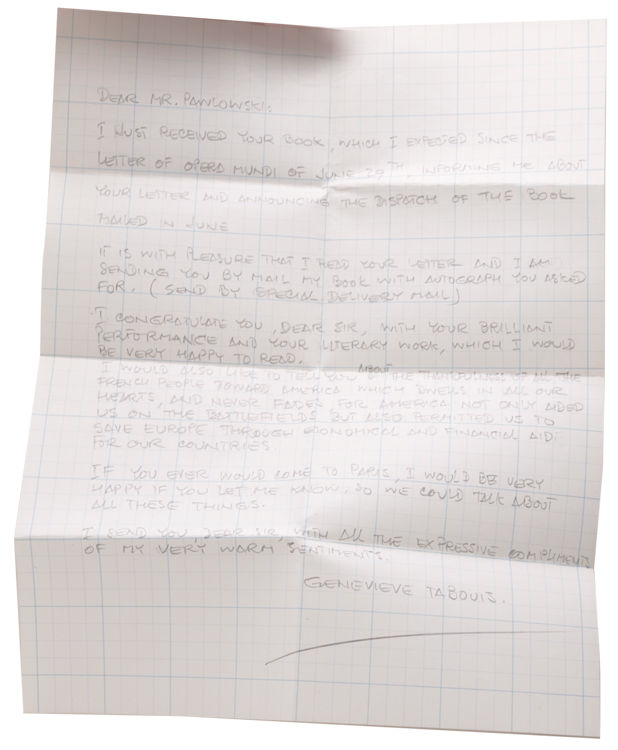 DEAR MR. PAWLOWSKI:
I JUST RECEIVED YOUR BOOK, WHICH I EXPECTED SINCE THE
LETTER OF OPERA MUNDI OF JUNE 29TH, INFORMING ME ABOUT
YOUR LETTER AND ANNOUNCING THE DISPATCH OF THE BOOK
MAILED IN JUNE
IT IS WITH PLEASURE THAT I READ YOUR LETTER AND I AM
SENDING YOU BY MAIL MY BOOK WITH AUTOGRAPH YOU ASKED
FOR. (SEND BY SPECIAL DELIVERY MAIL)
I CONGRATULATE YOU, DEAR SIR, WITH YOUR BRILLIANT
PERFORMANCE AND YOUR LITERARY WORK, WHICH I WOULD
BE VERY HAPPY TO READ.
I WOULD ALSO LIKE TO TELL YOU ABOUT THE THANKFULNESS OF ALL THE
FRENCH PEOPLE TOWARD AMERICA WHICH DWELLS IN ALL OUR
HEARTS, AND NEVER FADES FOR AMERICA NOT ONLY AIDED
US ON THE BATTLEFIELDS BUT ALSO PERMITTED US TO
SAVE EUROPE THROUGH ECONOMICAL AND FINANCIAL AID
FOR OUR COUNTRIES.
IF YOU EVER WOULD COME TO PARIS, I WOULD BE VERY
HAPPY IF YOU LET ME KNOW, SO WE COULD TALK ABOUT
ALL THESE THINGS.
I SEND YOU, DEAR SIR, WITH ALL THE EXPRESSIVE COMPLIMENTS
OF MY VERY WARM SENTIMENTS.
GENEVIEVE TABOUIS.